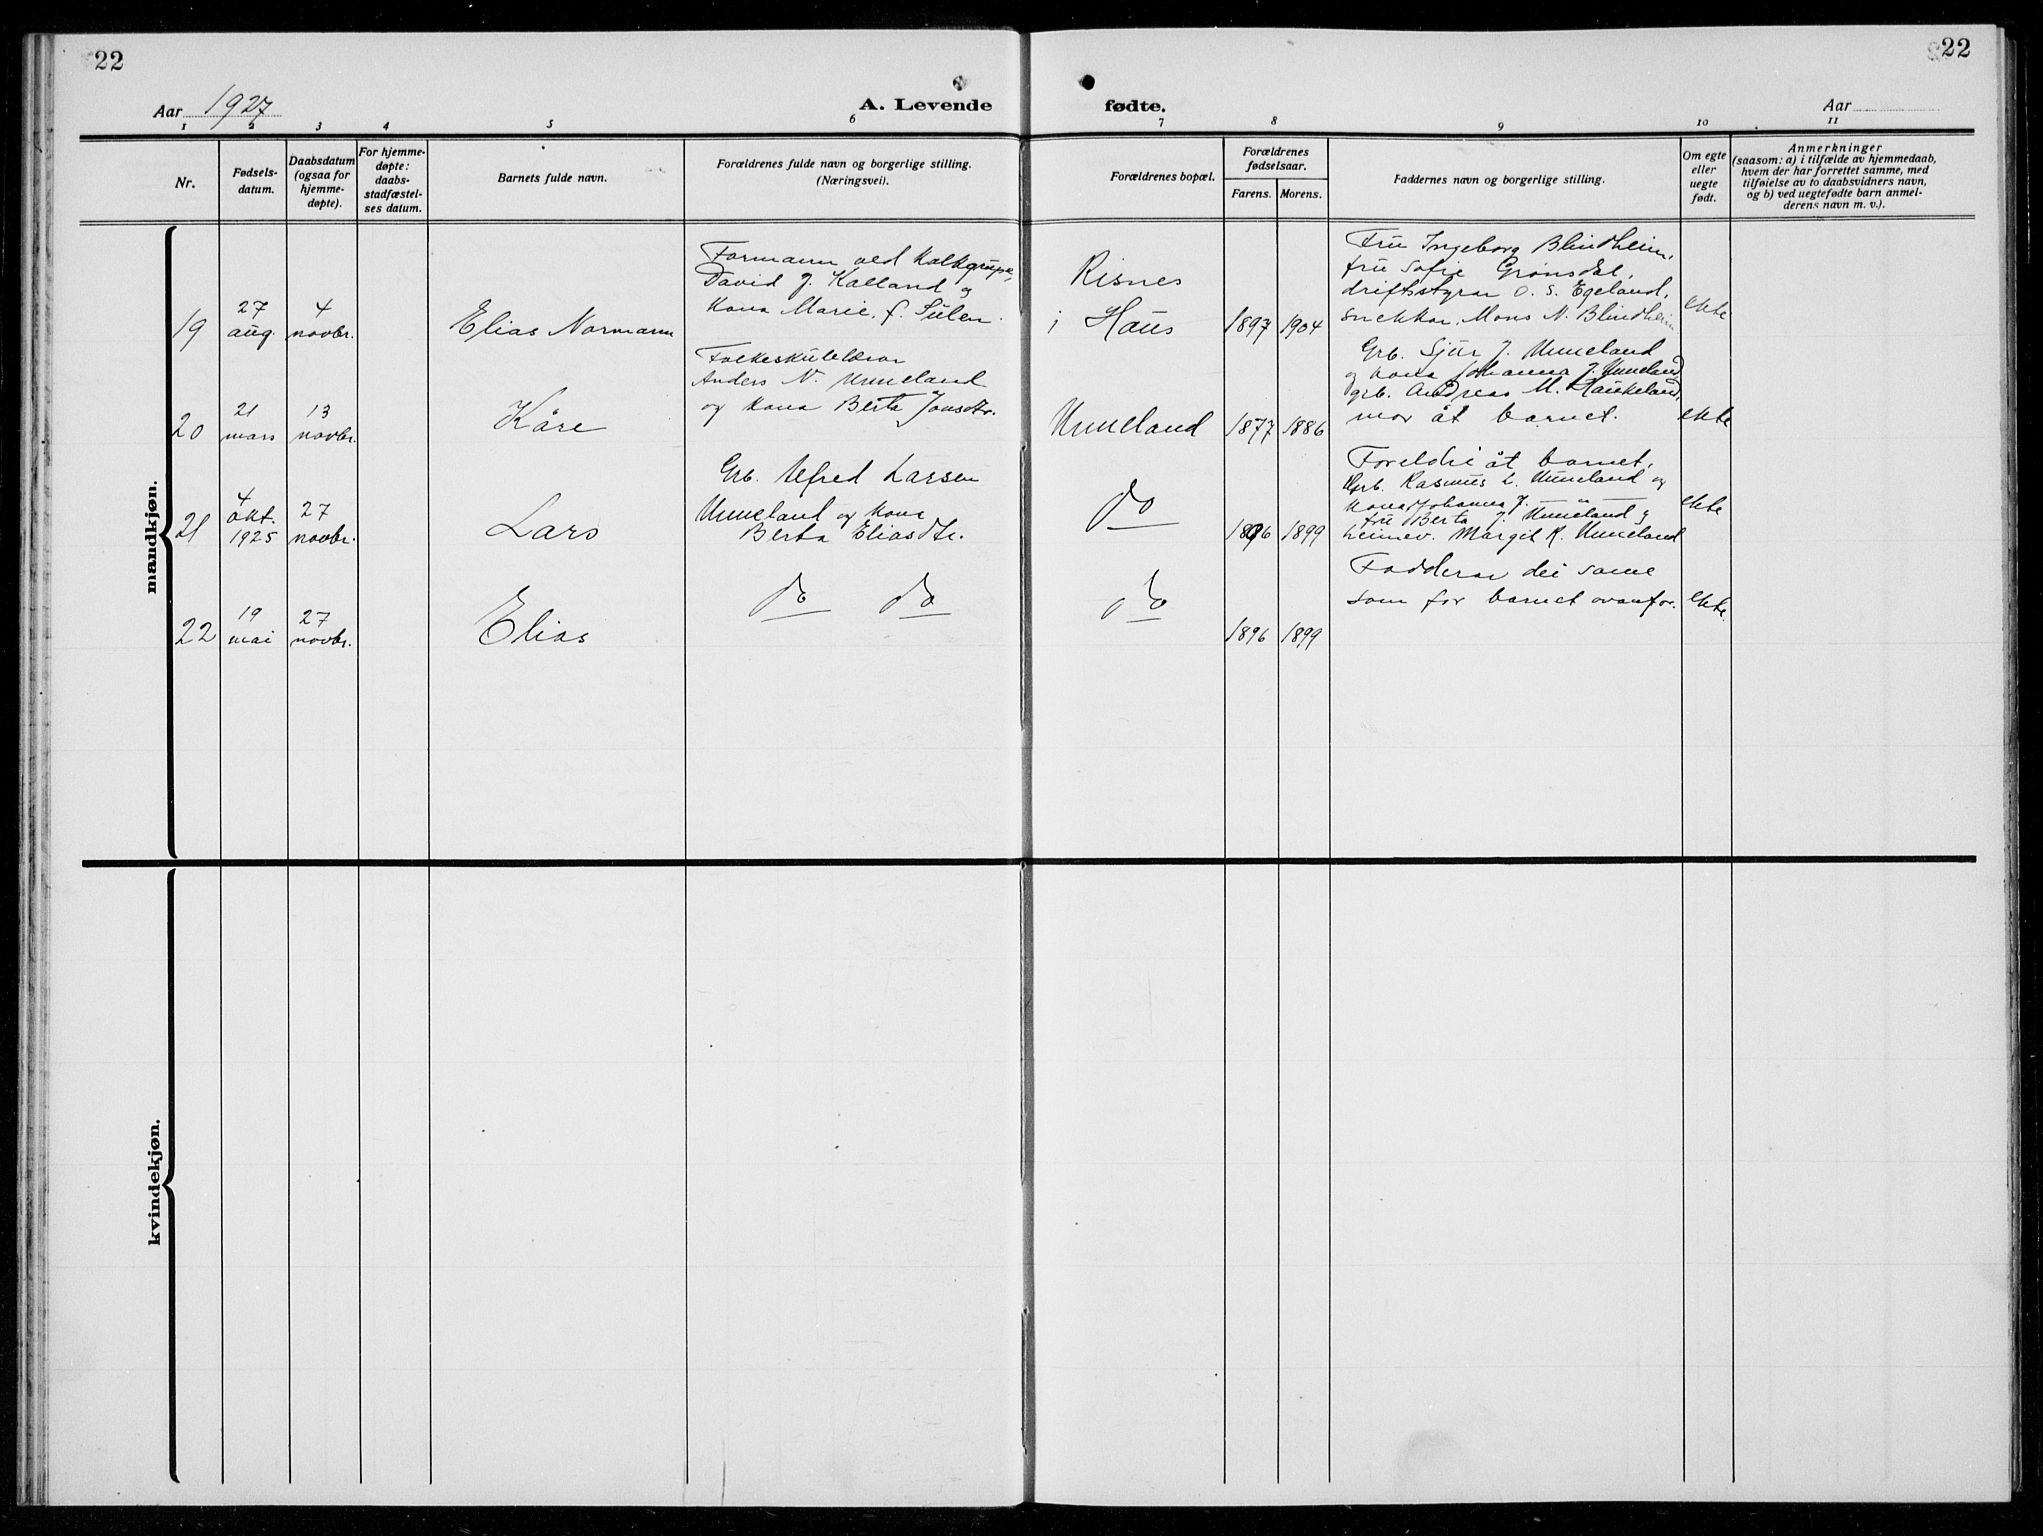 22
22
Aar 1927
A. Levende
fødte.
Aar
1 2 3 4 5 6 7 8 9 10 11
Nr.
Fødsels-
datum.
Daabsdatum
(ogsaa for
hjemme-
døpte).
For hjemme-
døpte:
daabs-
stadfæstel-
ses datum.
Barnets fulde navn.
Forældrenes fulde navn og borgerlige stilling.
(Næringsvei).
Forældrenes bopæl.
Forældrenes
fødselsaar.
Farens. Morens.
Faddernes navn og borgerlige stilling.
Om egte
eller
uegte
født.
Anmerkninger
(saasom: a) i tilfælde av hjemmedaab,
hvem der har forrettet samme, med
tilføielse av to daabsvidners navn,
og b) ved uegtefødte barn anmel-
derens navn m. v.).
mandkjøn.
19
27
aug.
4
novbr.
Elias Normann
Formann ved Kalkgruve,
David J. Kalland og
kona Marie, f. Sulen.
Risnes
i Haus
1897 1904
Fru Ingeborg Blindheim,
fru Sofie Grønsdal,
driftsstyrar O. S. Egeland,
snekkar. Mons N. Blindheim
ekte
20
21
mars
13
novbr.
Kåre
Folkeskulelærar
Anders N. Unneland
og kona Berta Jonsdtr.
Unneland
1877 1886
Grb. Sjur J. Unneland
og kona Johanna J. Unneland
grb. Andreas M. Haukeland,
mor åt barnet.
ekte
21
4
okt.
1925
27
novbr.
Lars
Grb. Alfred Larsen
Unneland og kona
Berta Eliasdtr.
do
1896 1899
Foreldri åt barnet,
Grb. Rasmus L. Unneland og
kona Johanna J.
fru Berta J. Unneland og
heimev. Margit R. Unneland
ekte
22
19
mai
27
novbr.
Elias
do do
do
1896 1899
Fadderar dei same
som for barnet ovanfor.
ekte.
kvindekjøn.